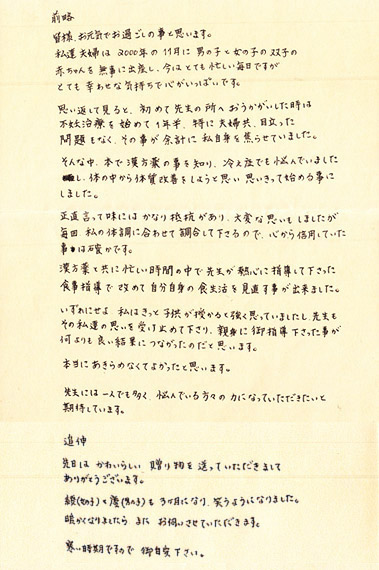 前略
皆様、お元気でお過ごしの事と思います。
私達夫婦は2000年の11月に男の子と女の子の双子の
赤ちゃんを無事に出産し、今はとても忙しい毎日ですが
とても幸わせな気持ちで心がいっぱいです。
思い返して見ると、初めて先生の所へおうかがいした時は
不妊治療を始めて1年半、特に夫婦共、目立った
問題もなく、その事が余計に私自身を焦らせていました。
そんな中、本で漢方薬の事を知り、冷え症でも悩んでいました
し、体の中から体質改善をしようと思い思いきって始める事に
しました。
正直言って味にはかなり抵抗があり、大変な思いもしましたが
毎回、私の体調に合わせて調合して下さるので、心から信用していた
事は確かです。
漢方薬と共に忙しい時間の中で先生が熱心に指導して下さった
食事指導で改めて自分自身の食生活を見直す事が出来ました。
いずれにせよ、私はきっと子供が授かると強く思っていましたし、先生も
その私達の思いを受け止めて下さり、親身に御指導下さった事が
何よりも良い結果につながったのだと思います。
本当にあきらめなくてよかったと思います。
先生には一人でも多く、悩んでいる方々の力になっていただきたいと
期待しています。
追伸
先日はかわいらしい贈り物を送っていただきまして
ありがとうございます。
(女の子)と(男の子)も3ヶ月になり、笑うようになりました。
暖かくなりましたらまたお伺いさせていただきます。
寒い時期ですので御自愛下さい。